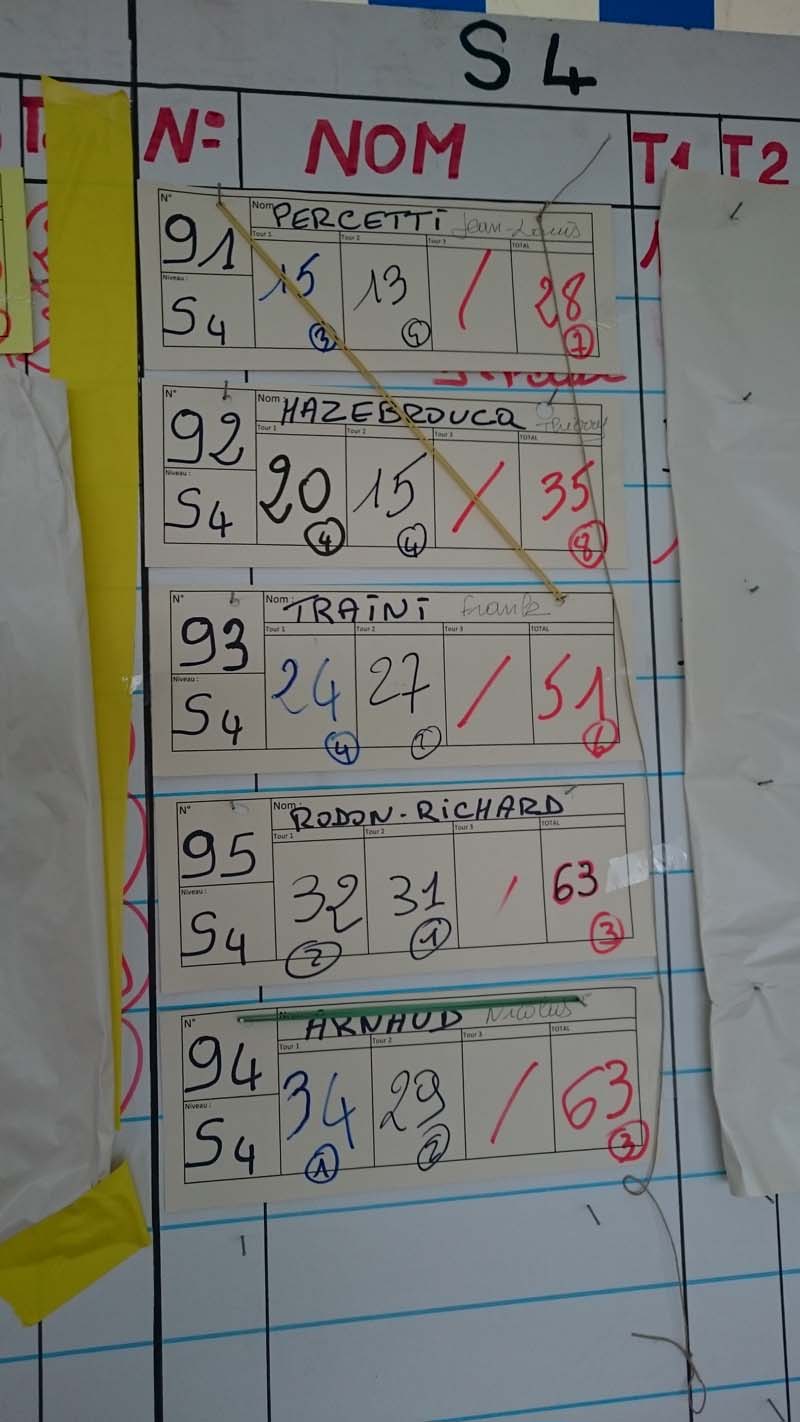 S4
N° NOM T1 T2
N° Nom PERCETTI Jean-Louis
91 Tour 1 Tour 2 Tour 3 TOTAL
Niveau : 15 13 / 28
S4 3 7
N° Nom HAZEBROUCQ Thierry
92 Tour 1 Tour 2 Tour 3 TOTAL
Niveau : 20 15 / 35
S4 4 4 8
N° Nom : TRAINI Frank
93 Tour 1 Tour 2 Tour 3 TOTAL
Niveau : 24 27 / 51
S4 4 6
N° Nom : RODON-RICHARD
95 Tour 1 Tour 2 Tour 3 TOTAL
Niveau : 32 31 / 63
S4 2 1 3
N° ARNAUD Nicolas
94 Tour 1 Tour 2 Tour 3 TOTAL
Niveau : 34 29 / 63
S4 1 2 3